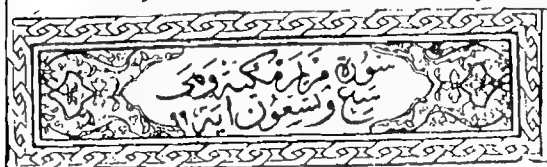 سورة مريم مكية وهى
سبع وتسعون اية